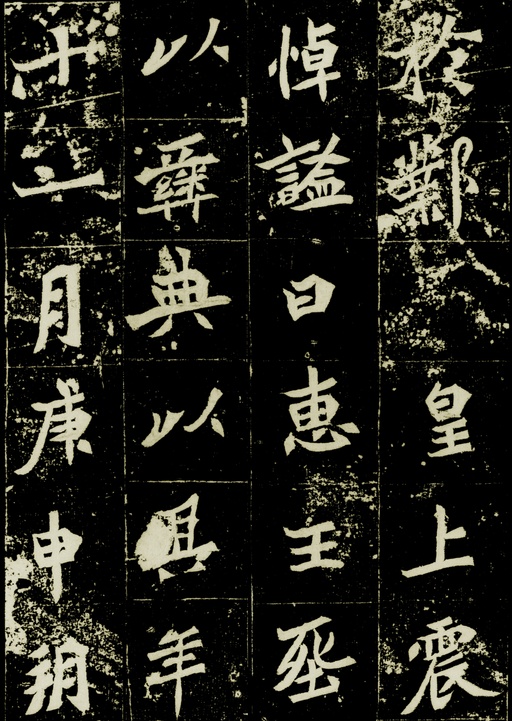 於鄴皇上震
悼謚曰惠王葬
以彝典以其年
十二月庚申朔